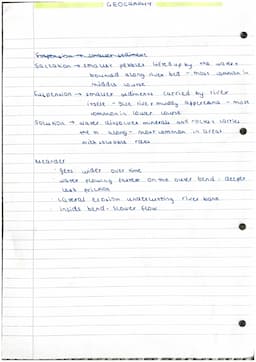 GEOGRAPHY
Suspension → smaller sediment
Saltation → smaller pebbles lifted up by the water +
bounced along river bed - most common in
middle course
Suspension → smaller sediments carried by river
itself - give river muddy appearance - most
common in lower course
Solution → water dissolves minerals and rocks + carries
them along - most common in areas
with soluble rocks
Meander
· gets wider over time
· water flowing faster on the outer bend - deeper
less friction
· lateral erosion undercutting river bank
· inside bend - slower flow